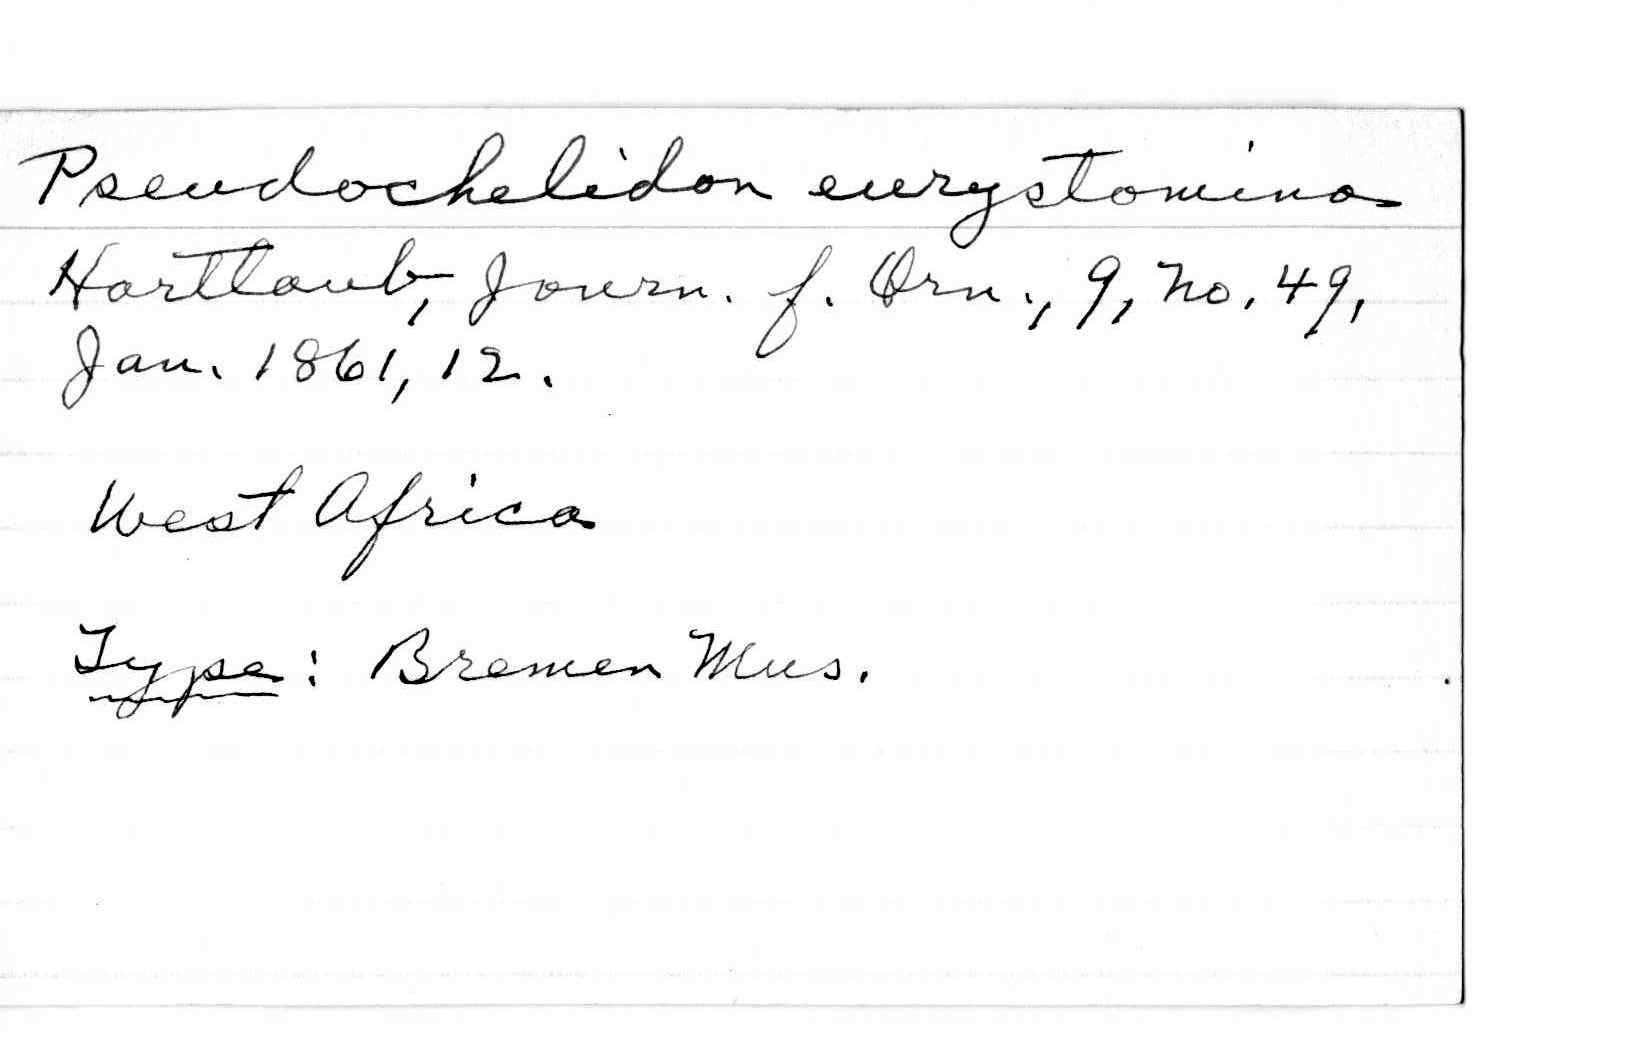 Pseudochelidon eurystomina
Hartlaub, Journ. f. Orn., 9, No. 49,
Jan. 1861, 12.
West Africa
Type: Bremen Mus.